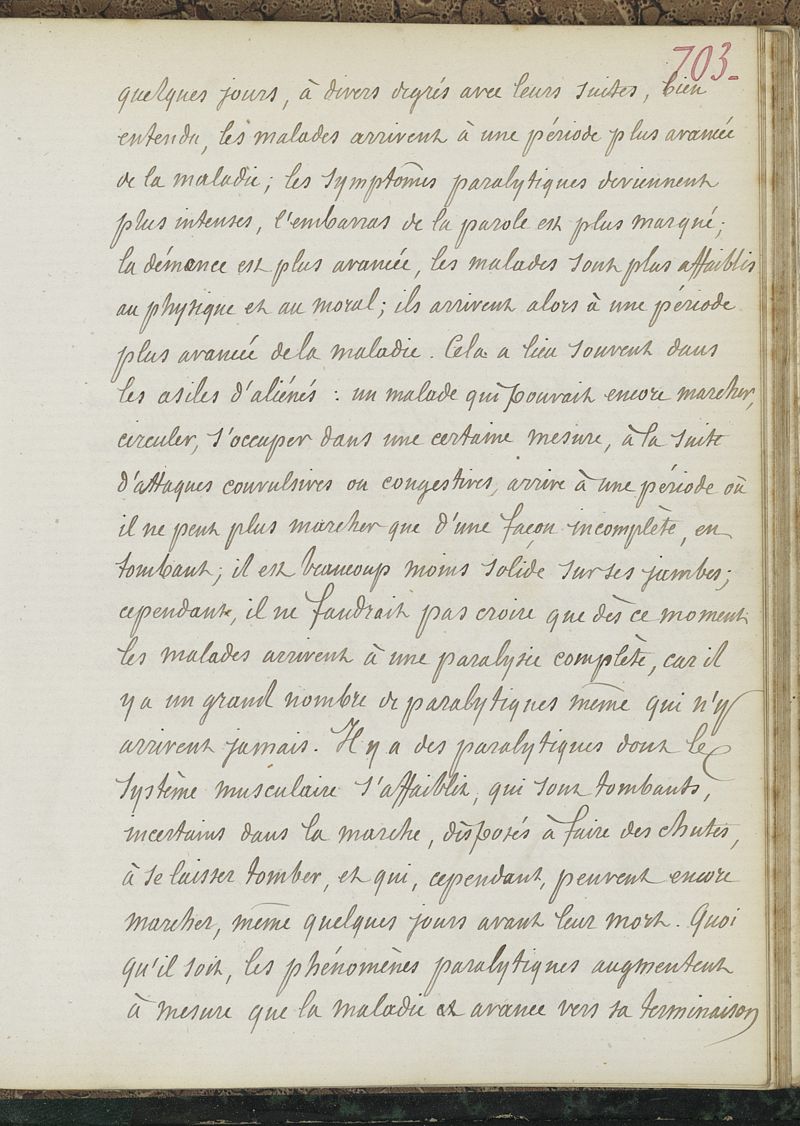 703.
quelques jours, à divers degrés avec leurs suites, bien
entendu, les malades arrivent à une période plus avancée
de la maladie; les symptômes paralytiques deviennent
plus intenses, l'embarras de la parole est plus marqué;
la démence est plus avancée, les malades sont plus affaiblis
au physique et au moral; ils arrivent alors à une période
plus avancée de la maladie. Cela a lieu souvent dans
les asiles d'aliénés : un malade qui pouvait encore marcher,
circuler, s'occuper dans une certaine mesure, à la suite
d'attaques convulsives ou congestives, arrive à une période où
il ne peut plus marcher que d'une façon incomplète, en
tombant; il est beaucoup moins solide sur ses jambes;
cependant, il ne faudrait pas croire que dès ce moment
les malades arrivent à une paralysie complète, car il
y a un grand nombre de paralytiques même qui n'y
arrivent jamais. Il y a des paralytiques dont le
système musculaire s'affaiblit, qui sont tombants,
incertains dans la marche, disposés à faire des chutes,
à se laisser tomber, et qui, cependant, peuvent encore
marcher, même quelques jours avant leur mort. Quoi
qu'il soit, les phénomènes paralytiques augmentent
à mesure que la maladie avance vers sa terminaison